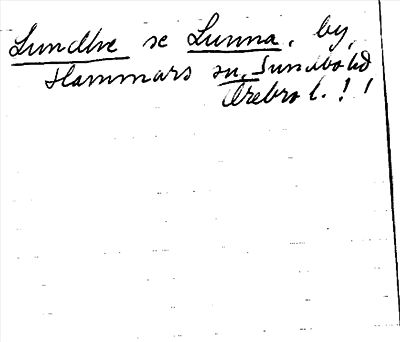 Lundhe se Lunna, by,
Hammars sn, Sundbo hd
Örebro l. !!